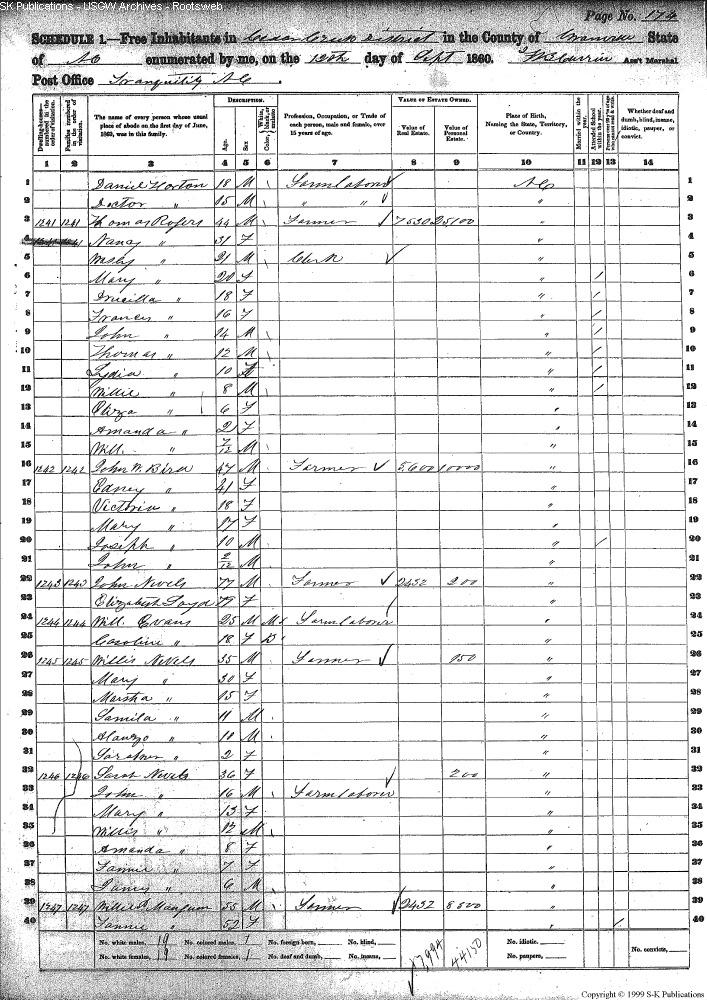 SK Publications - USGW Archives - Rootsweb
Page No. 174
SCHEDULE 1.—Free Inhabitants in Cedar Creek District in the County of Granville State
of NC enumerated by me, on the 12th day of Sept 1860. Ass't Marshal
Post Office Tranquility NC.
Dwelling-houses—numbered in the order of visitation.
Families numbered in the order of visitation.
The name of every person whose usual place of abode on the first day of June, 1860, was in this family.
DESCRIPTION.
Age.
Sex.
Color, White, black, or mulatto
Profession, Occupation, or Trade of each person, male and female, over 15 years of age.
VALUE OF ESTATE OWNED.
Value of Real Estate.
Value of Personal Estate.
Place of Birth, Naming the State, Territory, or Country.
Married within the year.
Attended School within the year.
Whether deaf and dumb, blind, insane, idiotic, pauper, or convict.
1 2 3 4 5 6 7 8 9 10 11 12 13 14
1 Daniel Horton 18 M Farm laborer NC 1
2 Doctor " 15 M " " " 2
3 1241 1241 Thomas Rogers 44 M Farmer 7530 25100 " 3
4 Nancy " 31 F " 4
5 " 21 M Clerk " 5
6 Mary " 20 F " / 6
7 Drucilla " 18 F " / 7
8 Frances " 16 F " / 8
9 John " 14 M " / 9
10 Thomas " 12 M " / 10
11 Lydia " 10 F " / 11
12 Willie " 8 M " / 12
13 Eliza " 6 F " 13
14 Amanda " 2 F " 14
15 Will. " 7/12 M " 15
16 1242 1242 John W. Bird 47 M Farmer 5600 10000 " 16
17 Edney " 41 F " 17
18 Victoria " 18 F " 18
19 Mary " 17 F " 19
20 Joseph " 10 M " / 20
21 John " 2/12 M " 21
22 1243 1243 John Nevels 77 M Farmer 2432 200 " 22
23 Elizabeth Loyd 79 F " 23
24 1244 1244 Will. Evans 25 M M Farm laborer " 24
25 Caroline " 18 F B " 25
26 1245 1245 Willis Nevels 35 M Farmer 150 " 26
27 Mary " 30 F " 27
28 Martha " 15 F " 28
29 " 11 M " 29
30 Alonzo " 10 M " 30
31 " 2 F " 31
32 1246 1246 Sarah Nevels 36 F 200 " 32
33 John " 16 M Farm laborer " 33
34 Mary " 13 F " 34
35 Willis " 12 M " 35
36 Amanda " 8 F " 36
37 Fannie " 7 F " 37
38 " 6 M " 38
39 1247 1247 Willie P Mangum 55 M Farmer 2432 8500 " 39
40 Fannie " 52 F " / 40
No. white males, 19 No. colored males, 1 No. foreign born, No. blind, No. idiotic,
No. white females, 19 No. colored females, 1 No. deaf and dumb, No. insane, No. paupers, No. convicts,
17994 44150
Copyright © 1999 S-K Publications